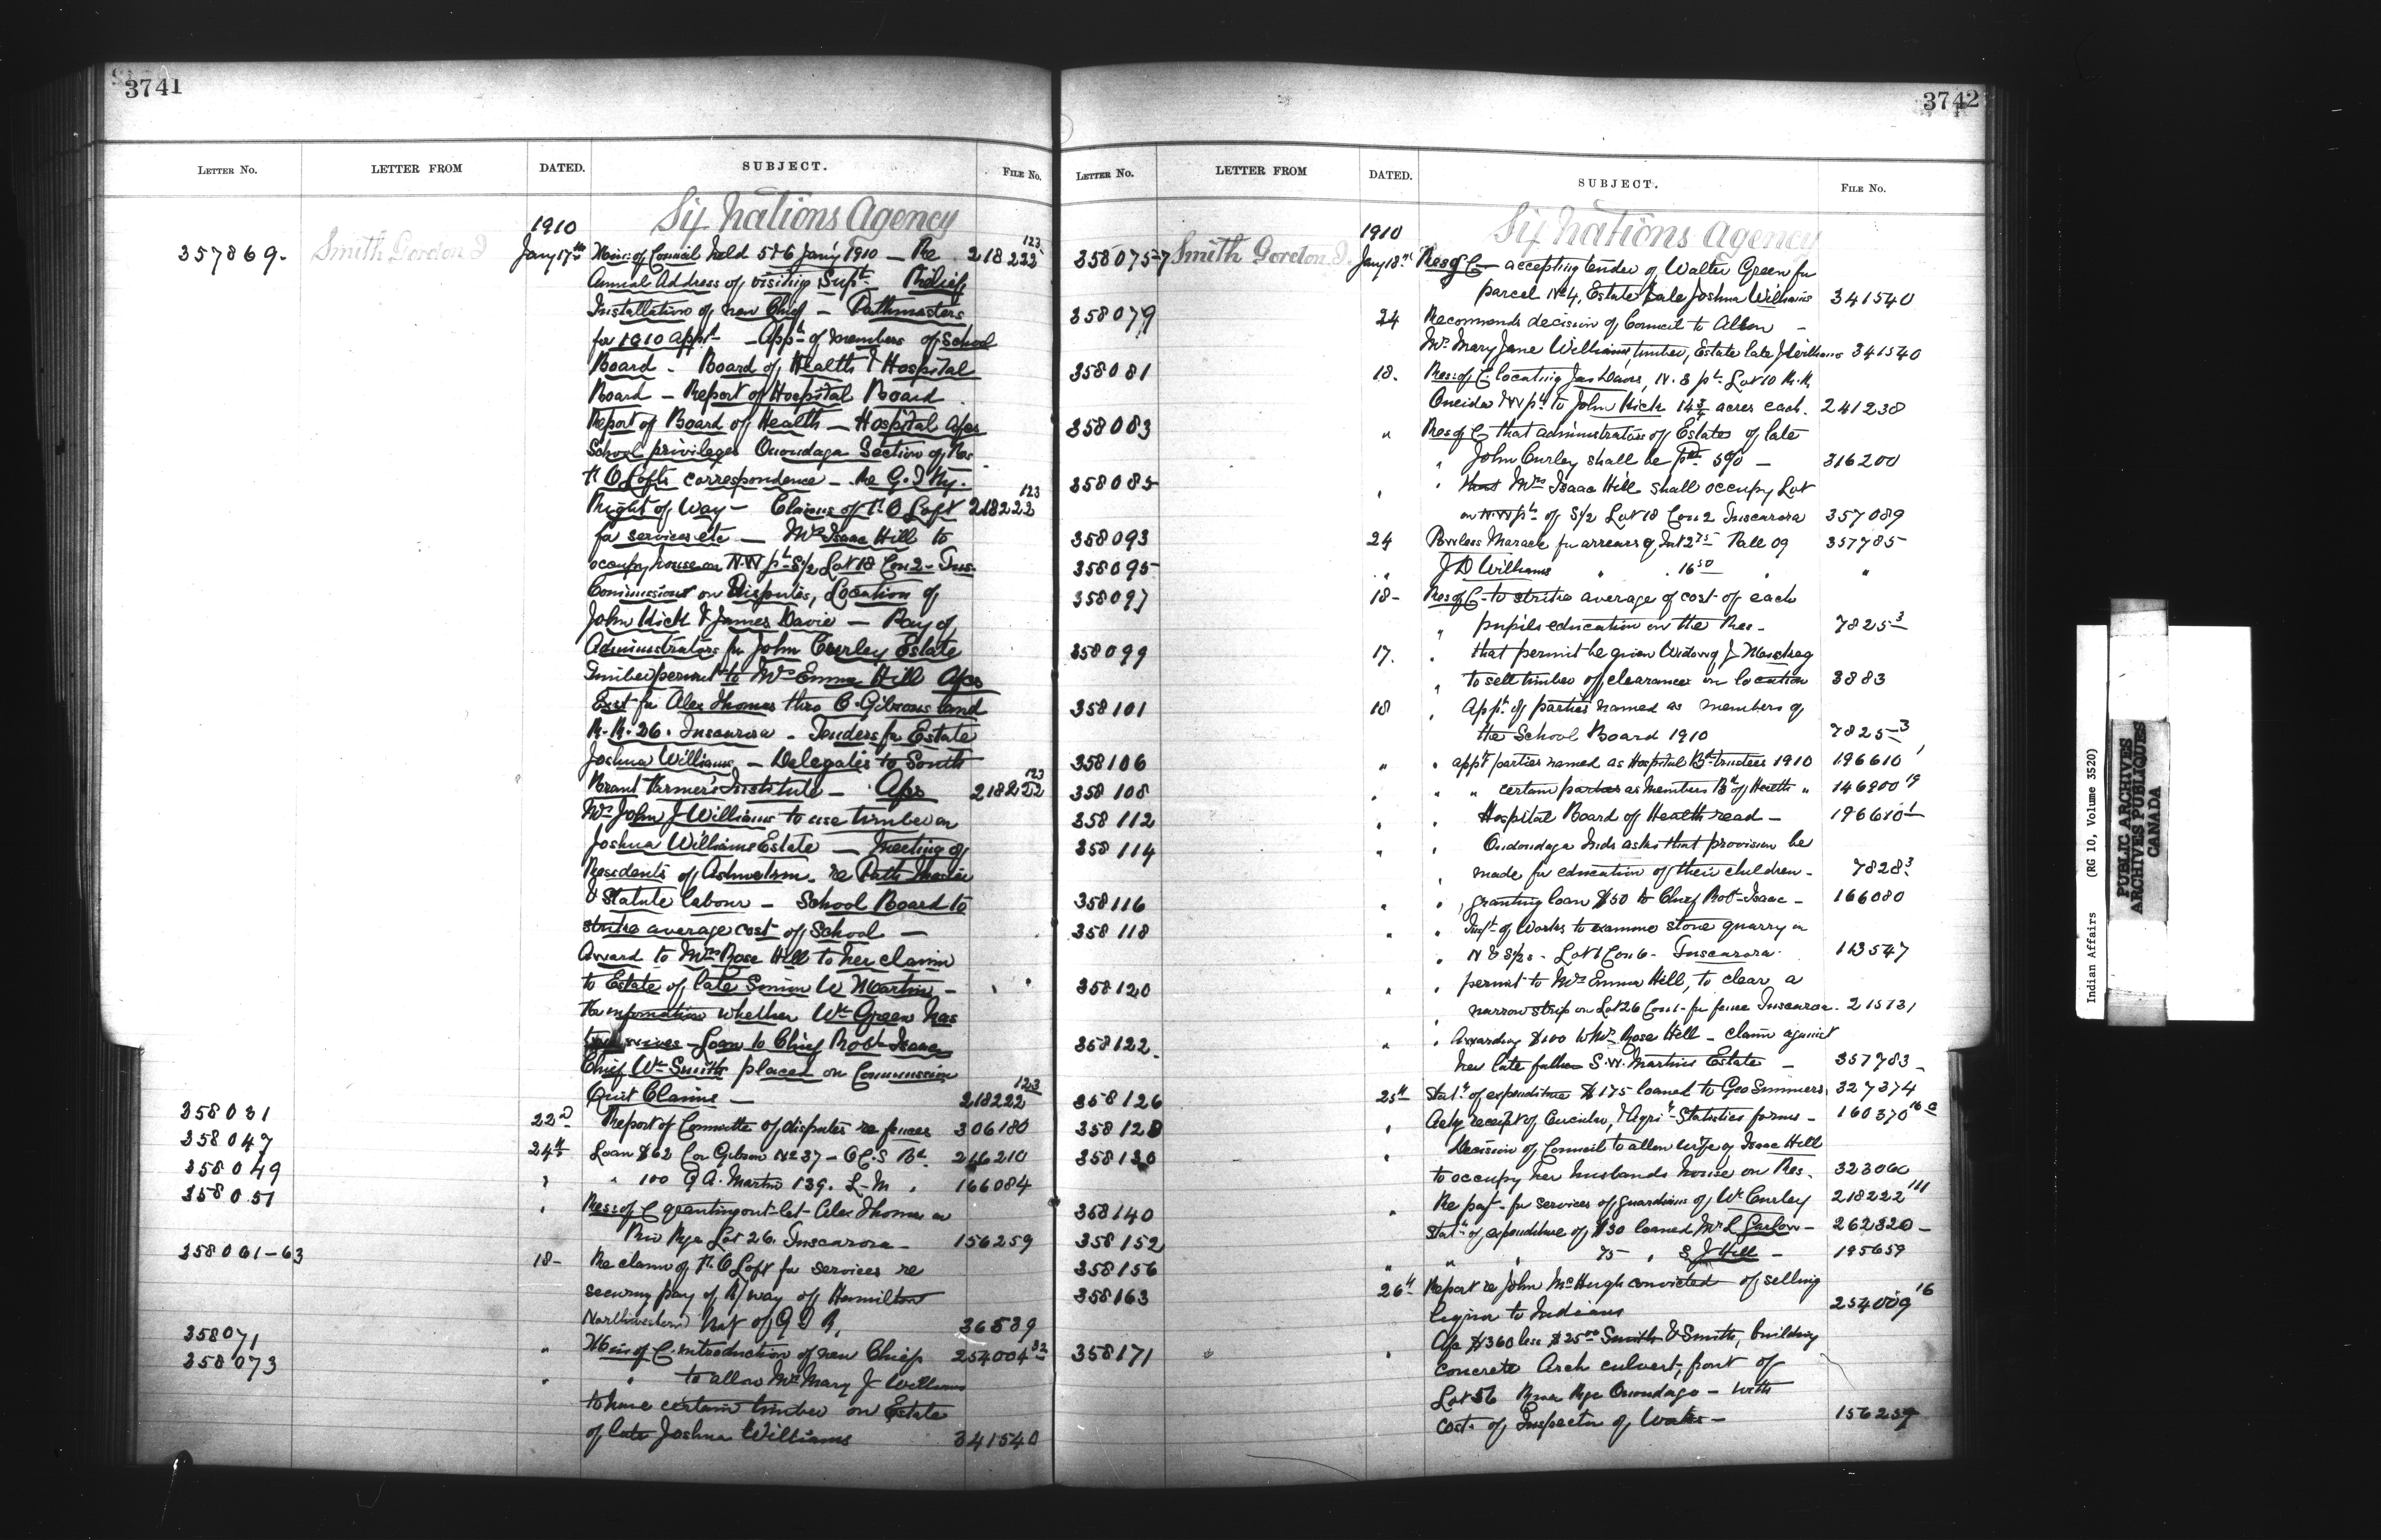 3741
LETTER No. LETTER FROM DATED. SUBJECT. FILE No.
Six Nations Agency
1910
357869- Smith Gordon J Jany 17th Min: of Council held 5 & 6 Jan'y 1910 — Re 218222 123
Annual Address of visiting Supt. Relief
Installation of new Chief — Pathmasters
for 1910 appt — Appt of members of School
Board - Board of Health & Hospital
Board — Report of Hospital Board
Report of Board of Health — Hospital
School privileges Onondaga Section of Res
O Lofts correspondence — Re G. T Ry.
Right of Way — Claims of O Loft 218222 123
for services etc — Mrs Isaac Hill to
occupy house on N.W pt S/2 Lot 18 Con 2 - Tus-
Commissions on Disputes, Location of
John Kick & James Davie — Pay of
Administrators for John Curley Estate
Timber permit to Mrs Emma Hill
for Alex Thomas thro C. Gibsons land
R.R. 26. Tuscarora - Tenders for Estate
Joshua Williams — Delegates to South
Brant Farmer's Institute — 218222 123
Mrs John J Williams to use timber on
Joshua Williams Estate — Meeting of
Residents of re Path Master
& Statute labour — School Board to
strike average cost of School —
Award to Mrs Rose Hill to her claim
to Estate of late Simon W Martin -
whether Wm Green has
- Loan to Chief Robt Isaac
Chief Wm Smith placed on Commission
Quit Claims — 218222 123
358031 22d Report of Committe of disputes re fences 306180
358047 24th Loan $62 Gibson No 37 - 216210
358049 " " 100 G A. Martin 139. L-M " 166084
358051 " Res: of C granting Alex Thomas on
Riv Rge Lot 26. Tuscarora - 156259
358061-63 18- Re claim of O Loft for services re
securing pay of R/way of Hamilton
Northwestern Nat of G T R, 36589
358071 " Min of C. introduction of new Chiefs 254004 32
358073 " " to allow Mrs Mary J Williams
to have certain timber on Estate
of late Joshua Williams 341540
3742
LETTER No. LETTER FROM DATED. SUBJECT. FILE No.
Six Nations Agency
1910
358075-7 Smith Gordon J. Jany 18th Res of C — accepting tender of Walter Green for
parcel No 4, Estate late Joshua Williams 341540
358079 24 Recommends decision of Council to Allow -
Mrs Mary Jane Williams, timber, Estate late J Williams 341540
358081 18. Res: of C. locating Jas Davis, N. pt. Lot 10 R.R.
Oneida & W pt to John Kick 14 3/4 acres each. 241238
358083 " Res of C that administrators of Estates of late
" John Curley shall be pd 5% — 316200
358085 " " that Mrs Isaac Hill shall occupy Lot
on N.W pt of S/2 Lot 18 Con 2 Tuscarora 357089
358093 24 Powless Maracle for arrears of Int 2 75 Rall 09 357785
358095 " J D Williams " 16 50 " "
358097 18- Res of C - to strike average of cost of each
" pupils education on the Res- 7825 3
358099 17. " that permit be given Widow of J
" to sell timber off clearances on location 3883
358101 18 " Appt. of parties named as members of
the School Board 1910 7825 3
358106 " " appt parties named as Hospital Bd trustees 1910 196610 1
358108 " " " certain parties as members Bd of Health " 146900 19
358112 " " Hospital Board of Health read — 196610 1
358114 " " Onondaga Inds asks that provision be
" made for education of their children - 7828 3
358116 " " granting loan $50 to Chief Robt Isaac - 166080
358118 " " Inspt of Works to examine stone quarry in
" Lot 1 Con 6 - Tuscarora. 113547
358120 " " permit to Mrs Emma Hill, to clear a
" narrow strip on Lot 26 Con 1 - for fence Tuscarora. 215131
358122 " " Awarding $100 to Mrs Rose Hill - claim against
her late father S.W. Martins Estate — 357783
358126 25th Statt of expenditure $175 loaned to Geo Summers 327374
358128 " Ackg receipt of Circular, & Agri'l Statistics forms - 160370 16 a
358130 " Decision of Council to allow wife of Isaac Hill
to occupy her husbands house on Res. 323060
358140 " Re pay - for services of guardians of W Curley 218222 111
358152 Statt of expenditure of $30 loaned Mr L Garlow - 262320 -
358156 " " " 75 - " S J Hill - 195659
358163 26th Report re John McHugh convicted of selling
liquor to Indians 254009 16
358171 " $360 less $25 00 Smith & Smith, building
concrete Arch culvert, front of
Lot 56 River Rge Onondago — with
cost of Inspector of Works — 156259
Indian Affairs (RG 10, Volume 3520)
PUBLIC ARCHIVES
ARCHIVES PUBLIQUES
CANADA